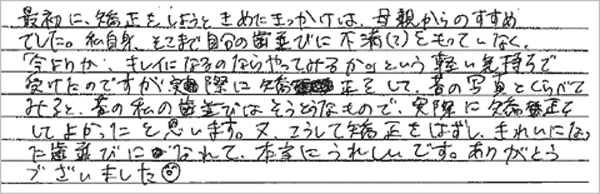 最初に、矯正をしようときめたきっかけは、母親からのすすめ
でした。私自身、そこまで自分の歯並びに不満(?)をもっていなく、
「今よりか、キレイになるのならやってみるか。」という軽い気持ちで
受けたのですが実際に矯正をして、昔の写真とくらべて
みると、昔の私の歯並びはそうとうなもので、実際に矯正を
してよかったと思います。又、こうして矯正をはずし、きれいになっ
た歯並びになれて、本当にうれしいです。ありがとう
ございました